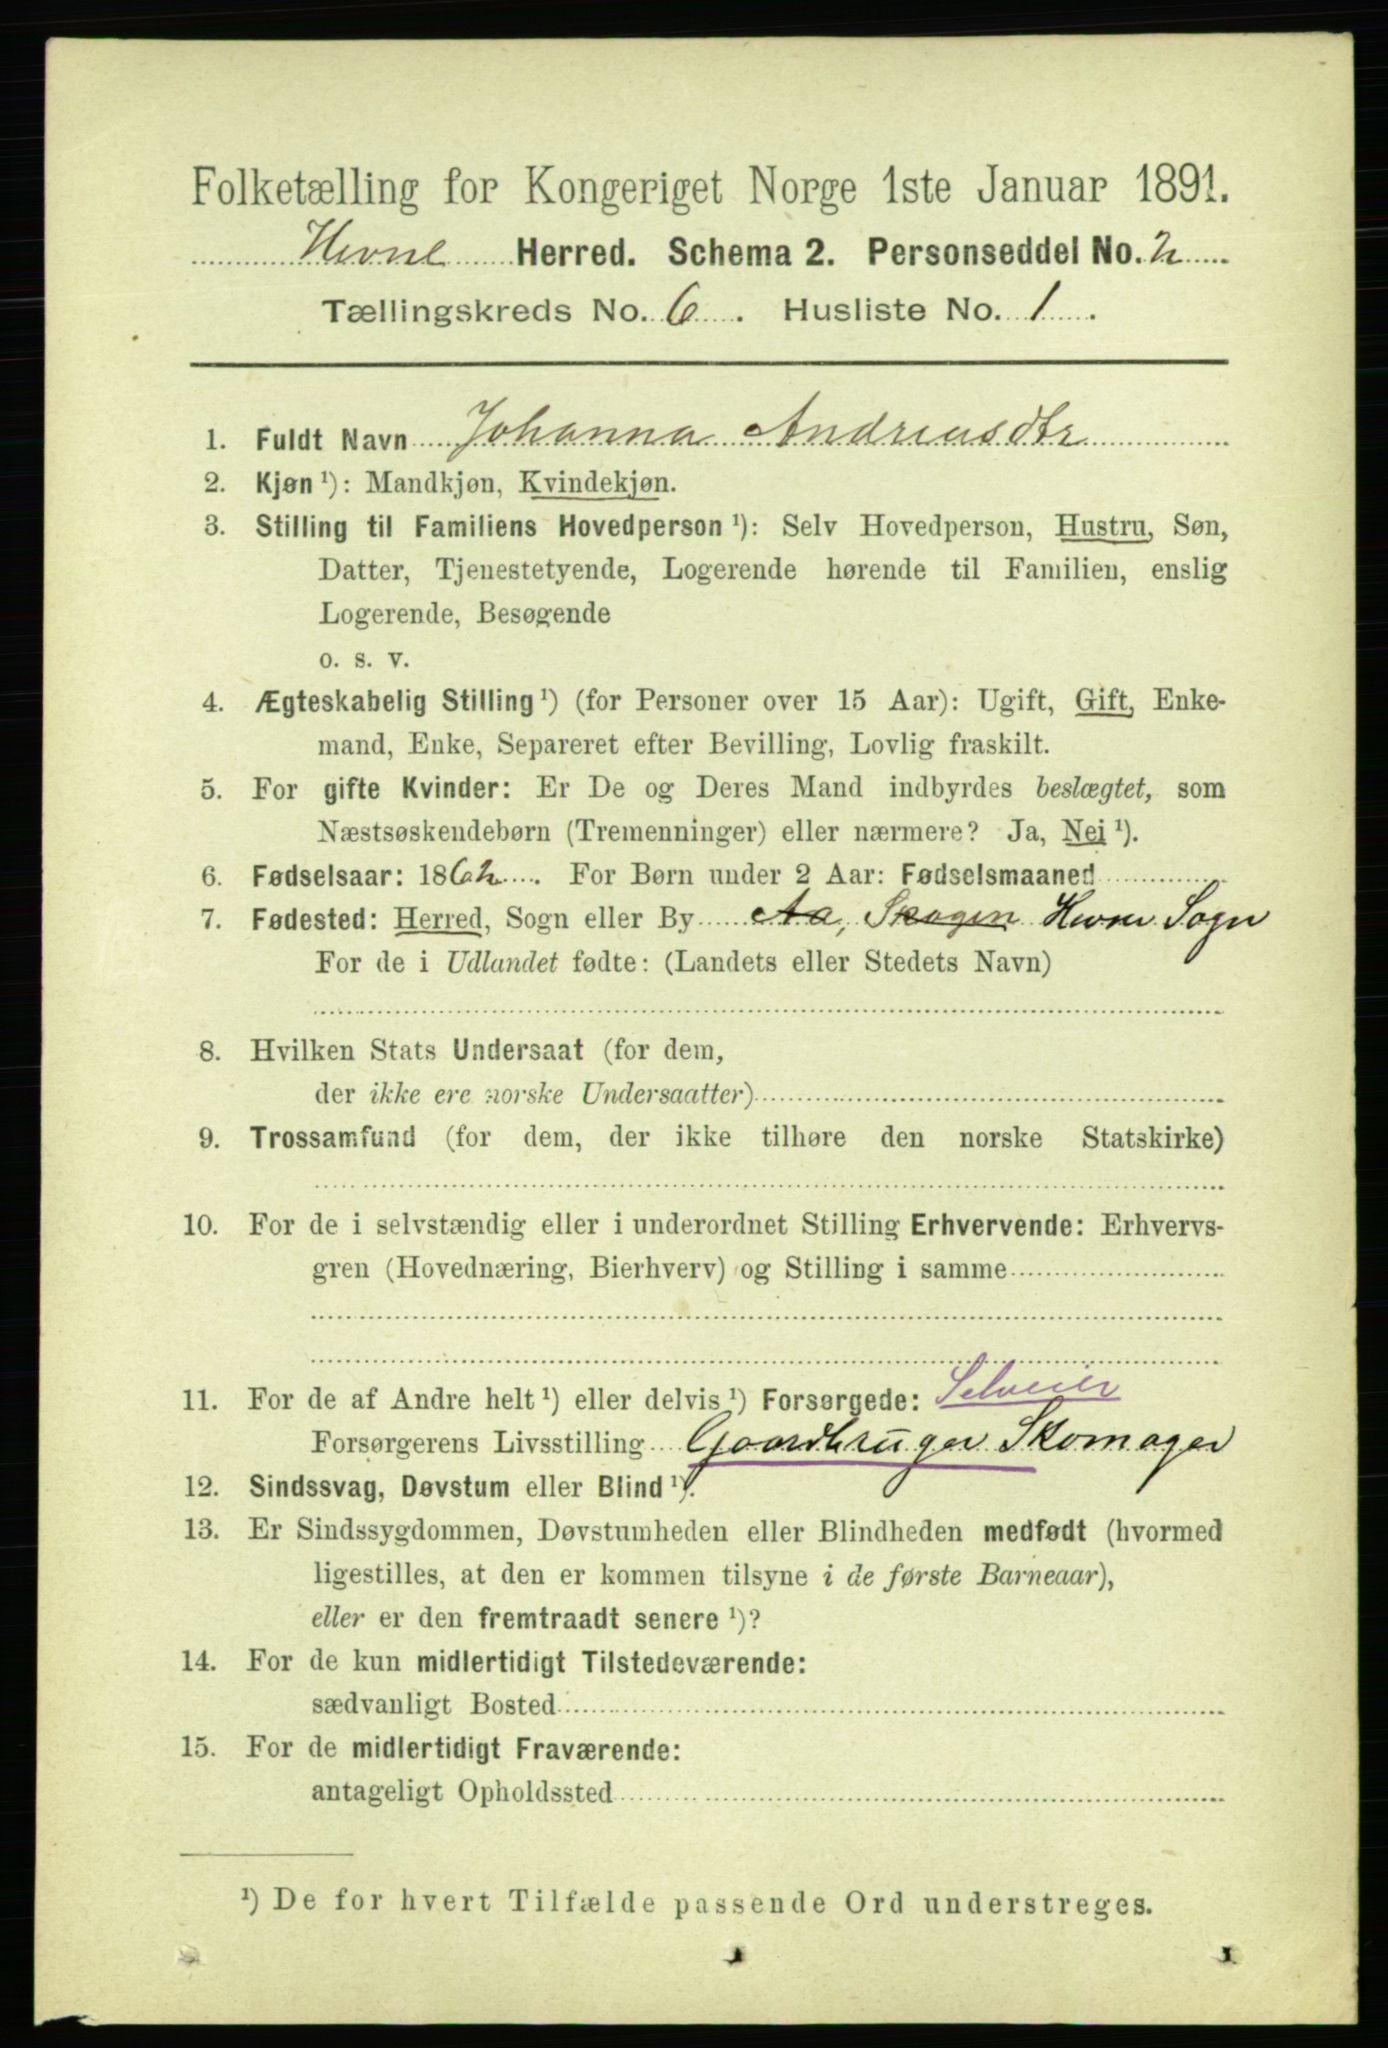 Folketælling for Kongeriget Norge 1ste Januar 1891.
Hevne Herred. Schema 2. Personseddel No. 2
Tællingskreds No. 6. Husliste No. 1.
1. Fuldt Navn Johanna Andreasdtr
2. Kjøn ¹): Mandkjøn, Kvindekjøn.
3. Stilling til Familiens Hovedperson ¹): Selv Hovedperson, Hustru, Søn,
Datter, Tjenestetyende, Logerende hørende til Familien, enslig
Logerende, Besøgende
o. s. v.
4. Ægteskabelig Stilling ¹) (for Personer over 15 Aar): Ugift, Gift, Enke-
mand, Enke, Separeret efter Bevilling, Lovlig fraskilt.
5. For gifte Kvinder: Er De og Deres Mand indbyrdes beslægtet, som
Næstsøskendebørn (Tremenninger) eller nærmere? Ja, Nei ¹).
6. Fødselsaar: 1862. For Børn under 2 Aar: Fødselsmaaned
7. Fødested: Herred, Sogn eller By Aa, Skogen Hevne Sogn
For de i Udlandet fødte: (Landets eller Stedets Navn)
8. Hvilken Stats Undersaat (for dem,
der ikke ere norske Undersaatter)
9. Trossamfund (for dem, der ikke tilhøre den norske Statskirke)
10. For de i selvstændig eller i underordnet Stilling Erhvervende: Erhvervs-
gren (Hovednæring, Bierhverv) og Stilling i samme
11. For de af Andre helt ¹) eller delvis ¹) Forsørgede: Selveier
Forsørgerens Livsstilling Gaardbruger Skomager
12. Sindssvag, Døvstum eller Blind ¹).
13. Er Sindssygdommen, Døvstumheden eller Blindheden medfødt (hvormed
ligestilles, at den er kommen tilsyne i de første Barneaar),
eller er den fremtraadt senere ¹)?
14. For de kun midlertidigt Tilstedeværende:
sædvanligt Bosted
15. For de midlertidigt Fraværende:
antageligt Opholdssted
¹) De for hvert Tilfælde passende Ord understreges.